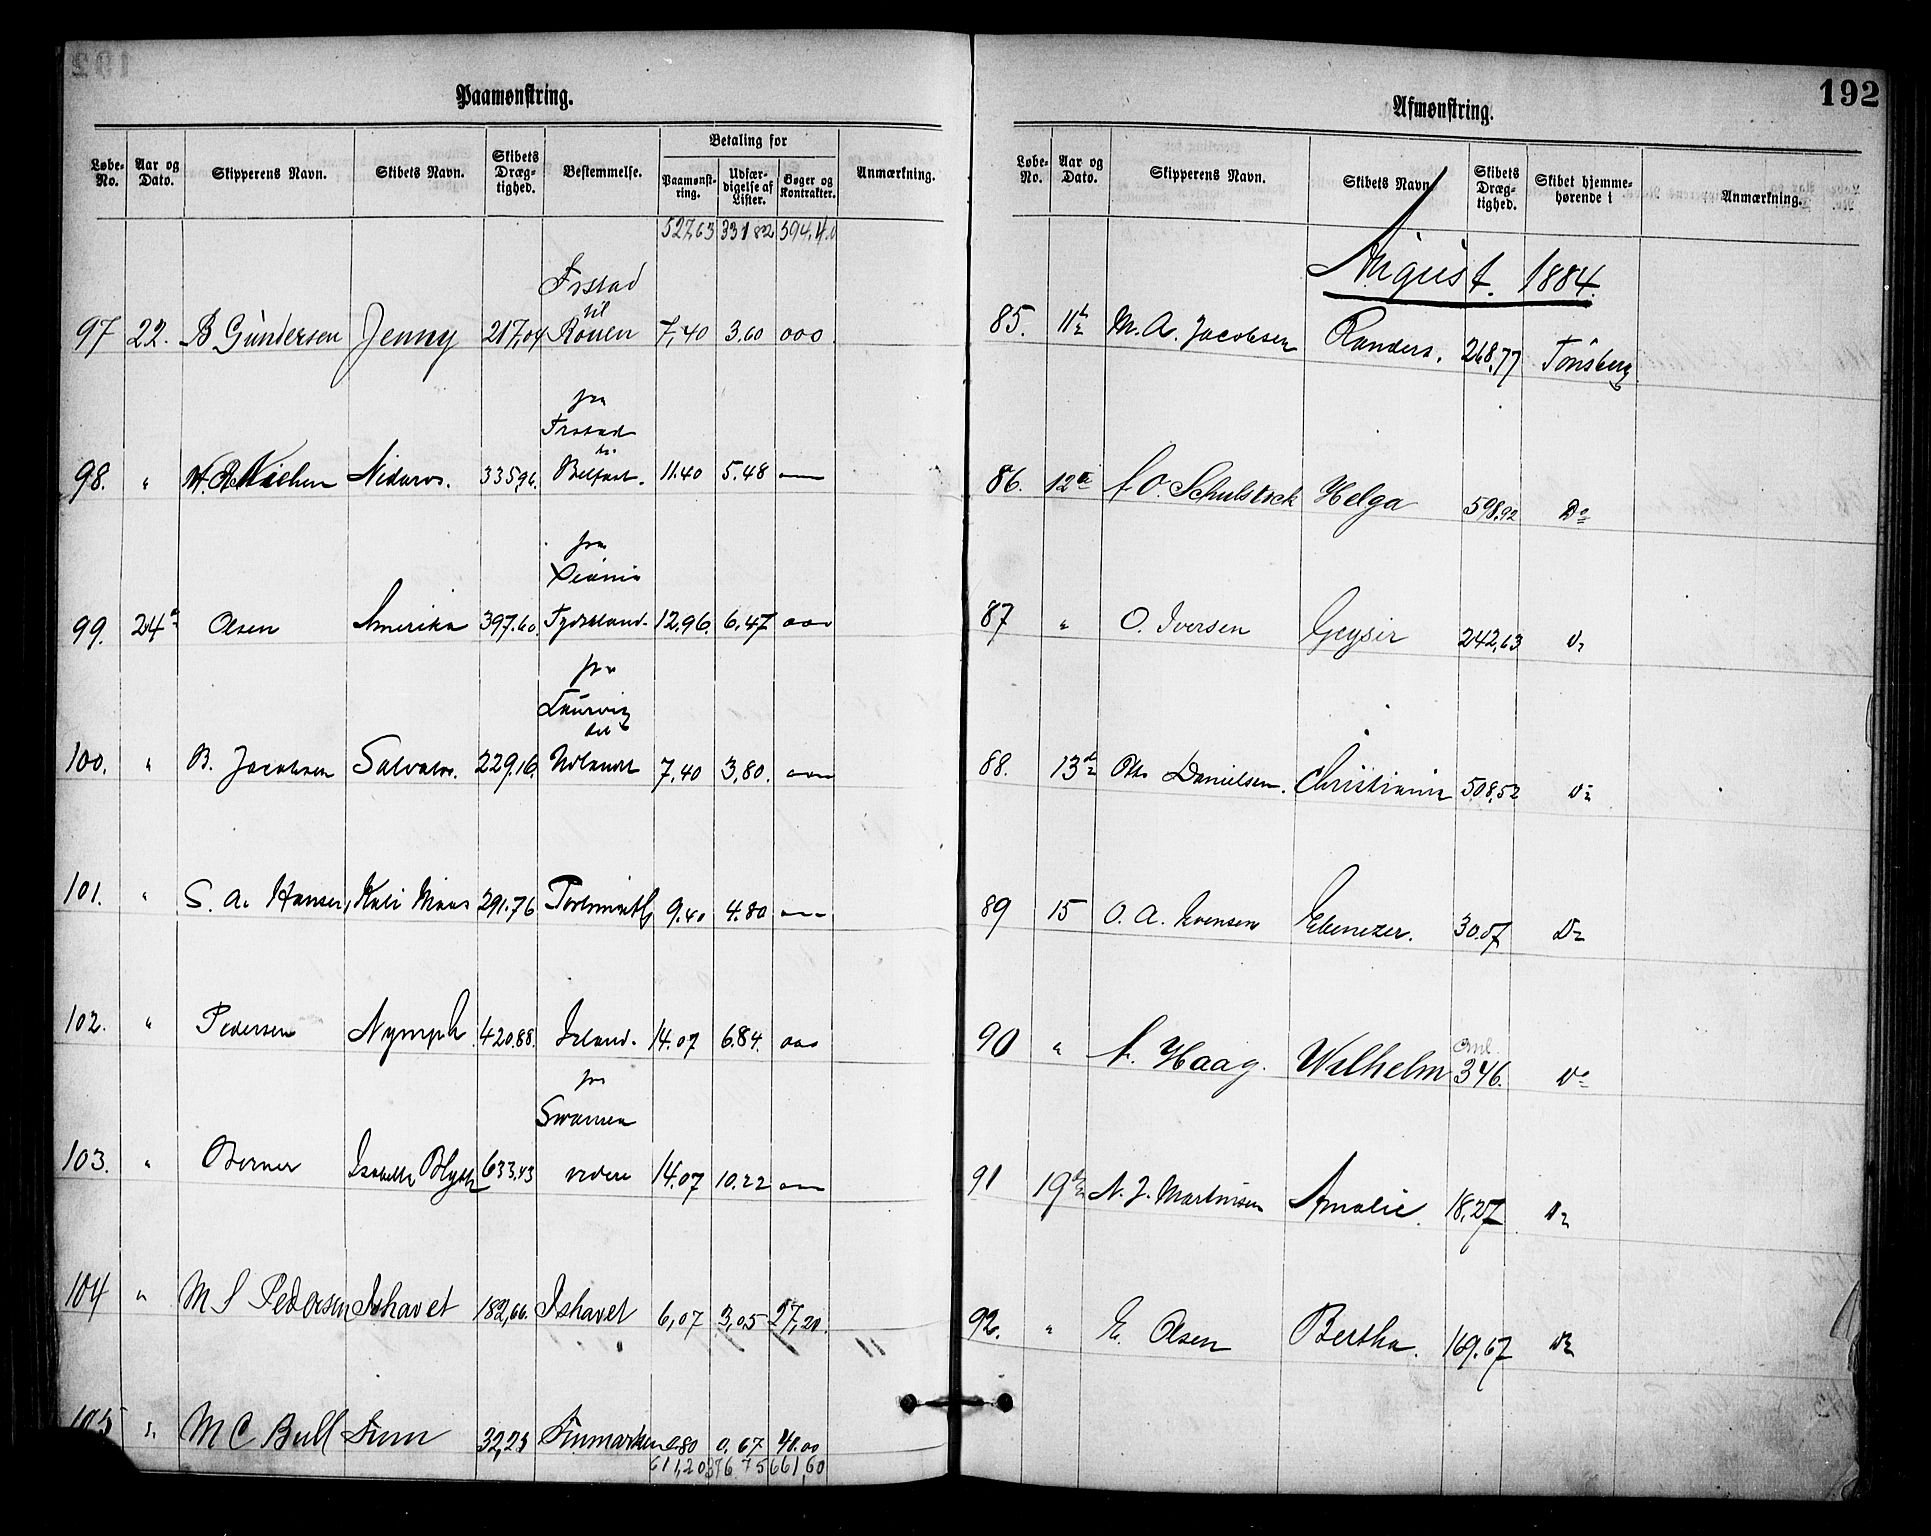 192
Paamønstring.
Løbe-No. Aar og Dato. Skipperens Navn. Skibets Navn. Skibets Dræg-tighed. Bestemmelse. Betaling for Paamønst-ring. Udfær-digelse af Lister. Bøger og Kontrakter. Anmærkning.
527,63 331 82 594,40
Frstad
til
97 22. B Gundersen Jenny 217,04 Rouen 7,40 3.60 000
fra
Frstad
98. " Nielsen Nidaros. 335,96. Belfast. 11.40 5.48
fra
99. 24 Olsen Amerika 397.60. Tydskland. 12,96. 6,47 000
fra
Laurvig
til
100. " B. Jacobsen Salvator. 229.16. Udlandet 7,40 3,80.
101. " S. A. Hansen, 291.76 9.40 4.80
102. " Pedersen Nymph 420.88. Irland. 14.07 6.84. 000
fra
Swansea
103. " Berner Isabella Blyth 633.43 videre 14.07 10.22
104 " M S Pedersen Ishavet 182,66. Ishavet 6,07 3,05 27,20.
105 " M C Bull 32,28 Finmarken 0.80 0,67 40.00
611,20 376 75 661,60
Afmønstring.
Løbe-No. Aar og Dato. Skipperens Navn. Skibets Navn. Skibets Dræg-tighed. Skibet hjemme-hørende i Anmærkning.
August. 1884.
85. 11 M. A. Jacobsen Randers. 268,77 Tønsberg
86. 12 Schulstock Helga 598,92 Do
87 " O. Iversen Geysir 242,63 Do
88. 13 Danielsen. Christiania 508,52 Do
89 15 O. A. Evensen Ebenezer. 30.07 Do
90 " Haag. Wilhelm 346. Do
91 19 N. J. Martinsen Amalie. 18,27 Do
92. " E. Olsen Bertha. 169.67 Do